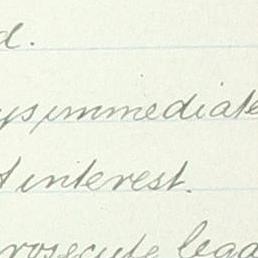 d.
ys, immediate
t interest.
rosecute lega